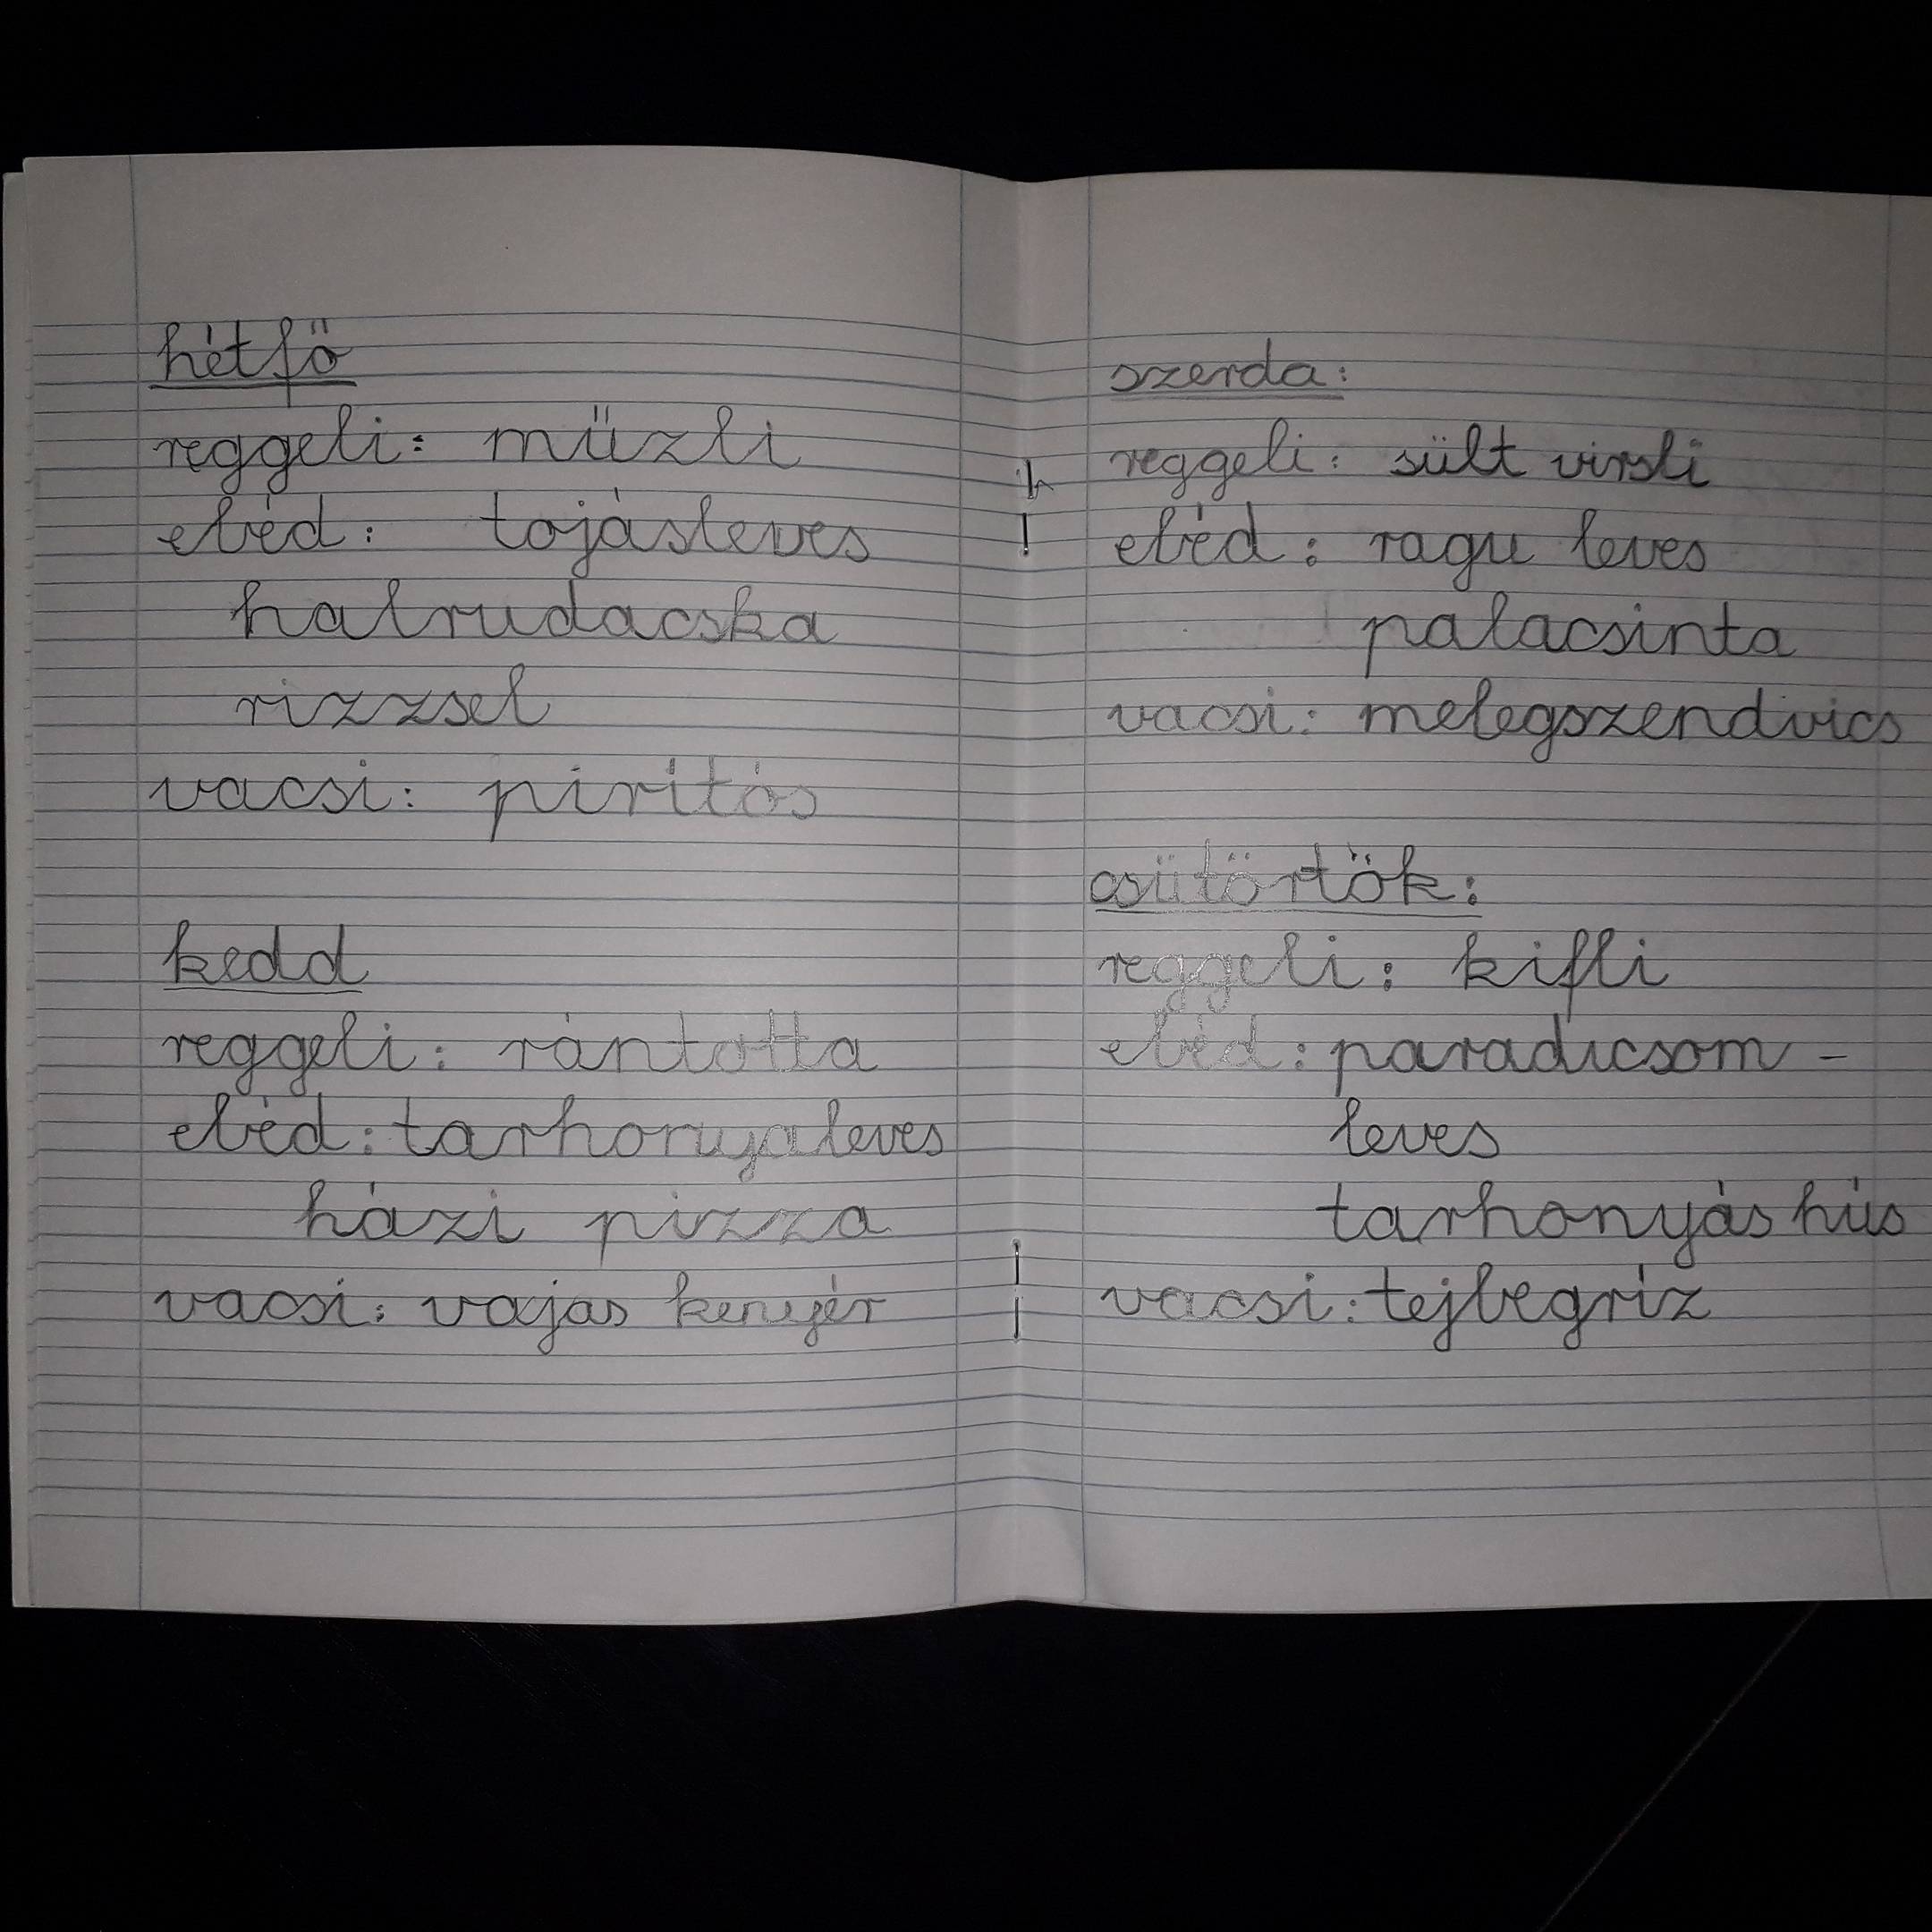 hétfő
reggeli: müzli
ebéd: tojásleves
halrudacska
rizzsel
vacsi: pirítós
kedd
reggeli: rántotta
ebéd: tarhonyaleves
házi pizza
vacsi: vajas kenyér
szerda:
reggeli: sült virsli
ebéd: ragu leves
palacsinta
vacsi: melegszendvics
csütörtök:
reggeli: kifli
ebéd: paradicsom -
leves
tarhonyás hús
vacsi: tejbegríz